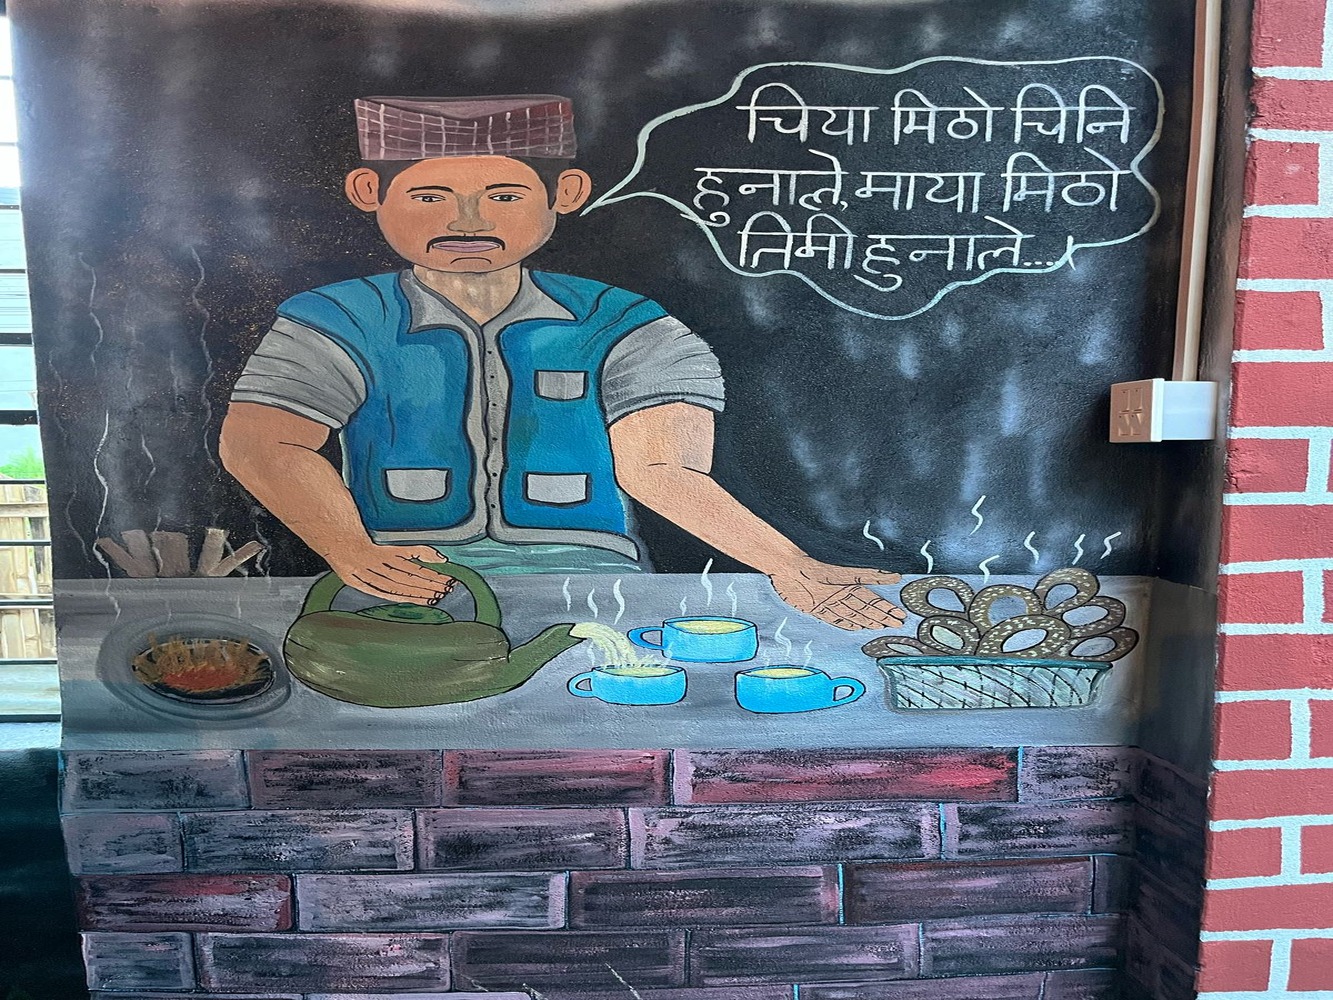 चिया मिठो चिनि
हुनाले, माया मिठो
तिमी हुनाले....।